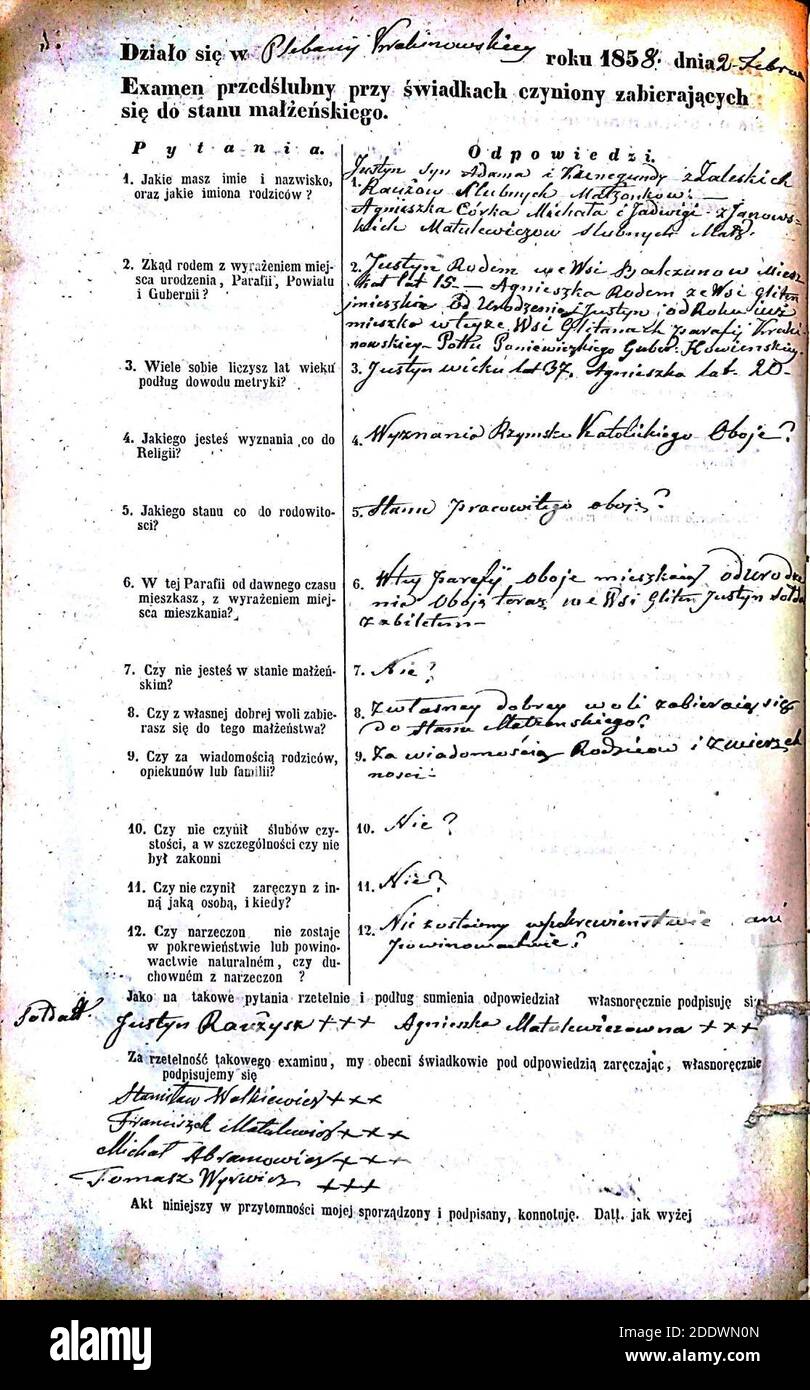 5.
Działo się w Plebanij Krakinowskiey roku 1858. dnia 2 Febru
Examen przedślubny przy świadkach czyniony zabierających
się do stanu małżeńskiego.
Pytania.
Odpowiedzi.
1. Jakie masz imie i nazwisko,
oraz jakie imiona rodziców?
Justyn syn Adama i Kunegundy z Zaleskich
1. Raużow Slubnych Małżonkow. —
Agnieszka Córka Michała i Jadwigi z Janows-
kich Matulewiczow slubnych Małż.
2. Zkąd rodem z wyrażeniem miej-
sca urodzenia, Parafii, Powiatu
i Gubernii?
2. Justyn Rodem we Wsi miesz
kał lat 15 — Agnieszka Rodem ze Wsi Gliten
od Urodzenia i Justyn od Roku już
mieszka w teyże Wsi Glitanach parafij Kraki-
nowskiey Pottu Poniewiezkiego Guber. Kowienskiey.
3. Wiele sobie liczysz lat wieku
podług dowodu metryki?
3. Justyn wieku lat 37. Agnieszka lat. 20 -
4. Jakiego jesteś wyznania co do
Religii?
4. Wyznania Rzymsko Katolickiego Oboje?
5. Jakiego stanu co do rodowito-
sci?
5. Stanu pracowitego oboje?
6. W tej Parafii od dawnego czasu
mieszkasz, z wyrażeniem miej-
sca mieszkania?
6. W tey parafij oboje mieszkaią od urodze
nia Oboje teraz we Wsi Gliten Justyn Sołda
z biletem —
7. Czy nie jesteś w stanie małżeń-
skim?
7. Nie?
8. Czy z własnej dobrej woli zabie-
rasz się do tego małżeństwa?
8. Z własney dobrey woli zabieraią się
do Stanu Małżenskiego?
9. Czy za wiadomością rodziców,
opiekunów lub familii?
9. Za wiadomością Rodzicow i Zwierzch
nosci.
10. Czy nie czynił ślubów czy-
stości, a w szczególności czy nie
był zakonni
10. Nie?
11. Czy nie czynił zaręczyn z in-
ną jaką osobą, i kiedy?
11. Nie?
12. Czy narzeczon nie zostaje
w pokrewieństwie lub powino-
wactwie naturalném, czy du-
chowném z narzeczon ?
12. Nie zostaiemy w pokrewienstwie ani
powinowactwie?
Jako na takowe pytania rzetelnie i podług sumienia odpowiedział własnoręcznie podpisuję się
Sołdatt. Justyn Rauzys +++ Agnieszka Matulewiczowna +++
Za rzetelność takowego examinu, my obecni świadkowie pod odpowiedzią zaręczając, własnoręcznie
podpisujemy się
Stanisław Walkiewicz +++
Franciszek Matulewicz +++
Michał Abramowicz +++
Tomasz Wyrwicz +++
Akt niniejszy w przytomności mojej sporządzony i podpisany, konnotuję. Datt. jak wyżej
alamy
Image ID: 2DDWN0N
www.alamy.com